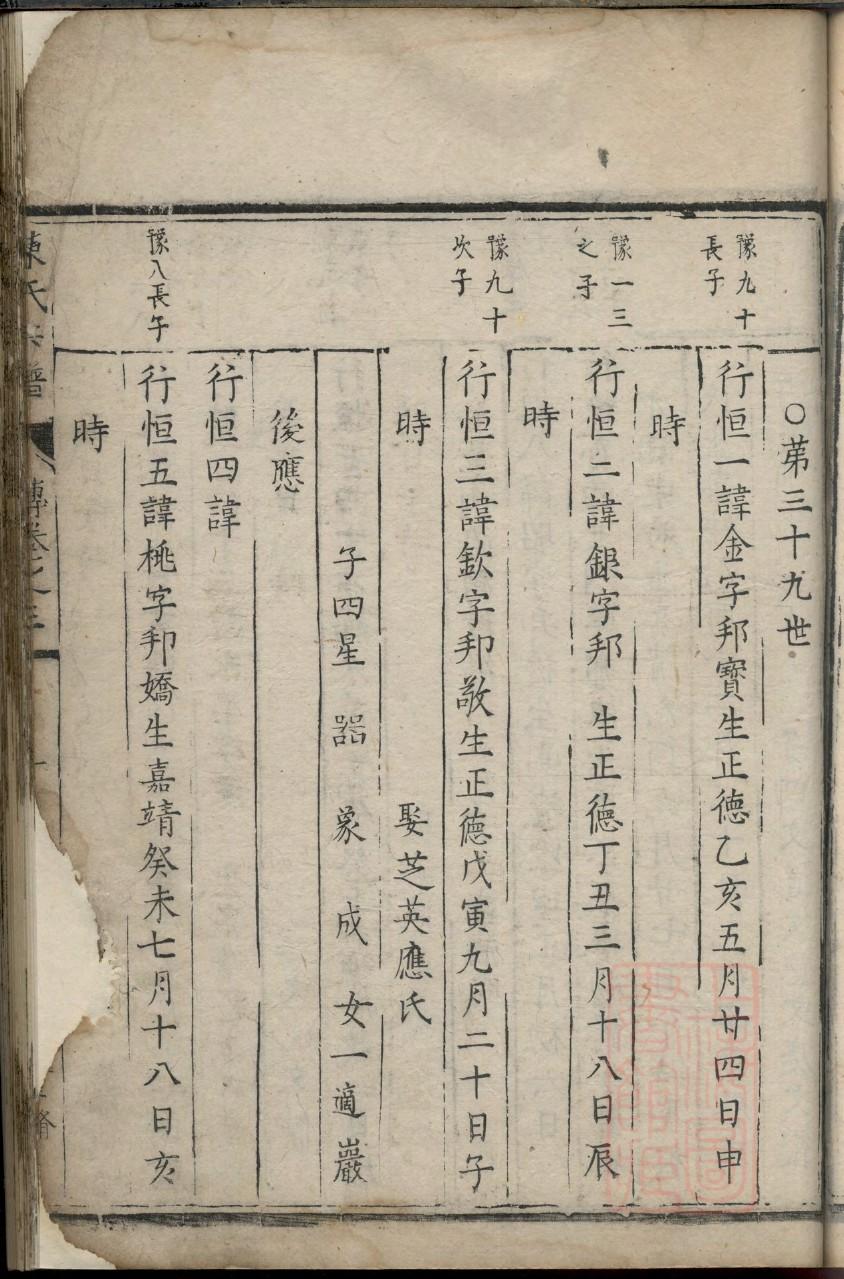 ○苐三十九世
豫九十
長子
行恒一諱金字邦寳生正德乙亥五月廿四日申
時
豫一三
之子
行恒二諱銀字邦 生正德丁丑三月十八日辰
時
豫九十
次子
行恒三諱欽字邦敬生正德戊寅九月二十日子
時 娶芝英應氏
子四星 器 象 成 女一適巖
後應
行恒四諱
豫八長子
行恒五諱桃字邦嬌生嘉靖癸未七月十八日亥
時
陳氏宗譜
傳卷之三